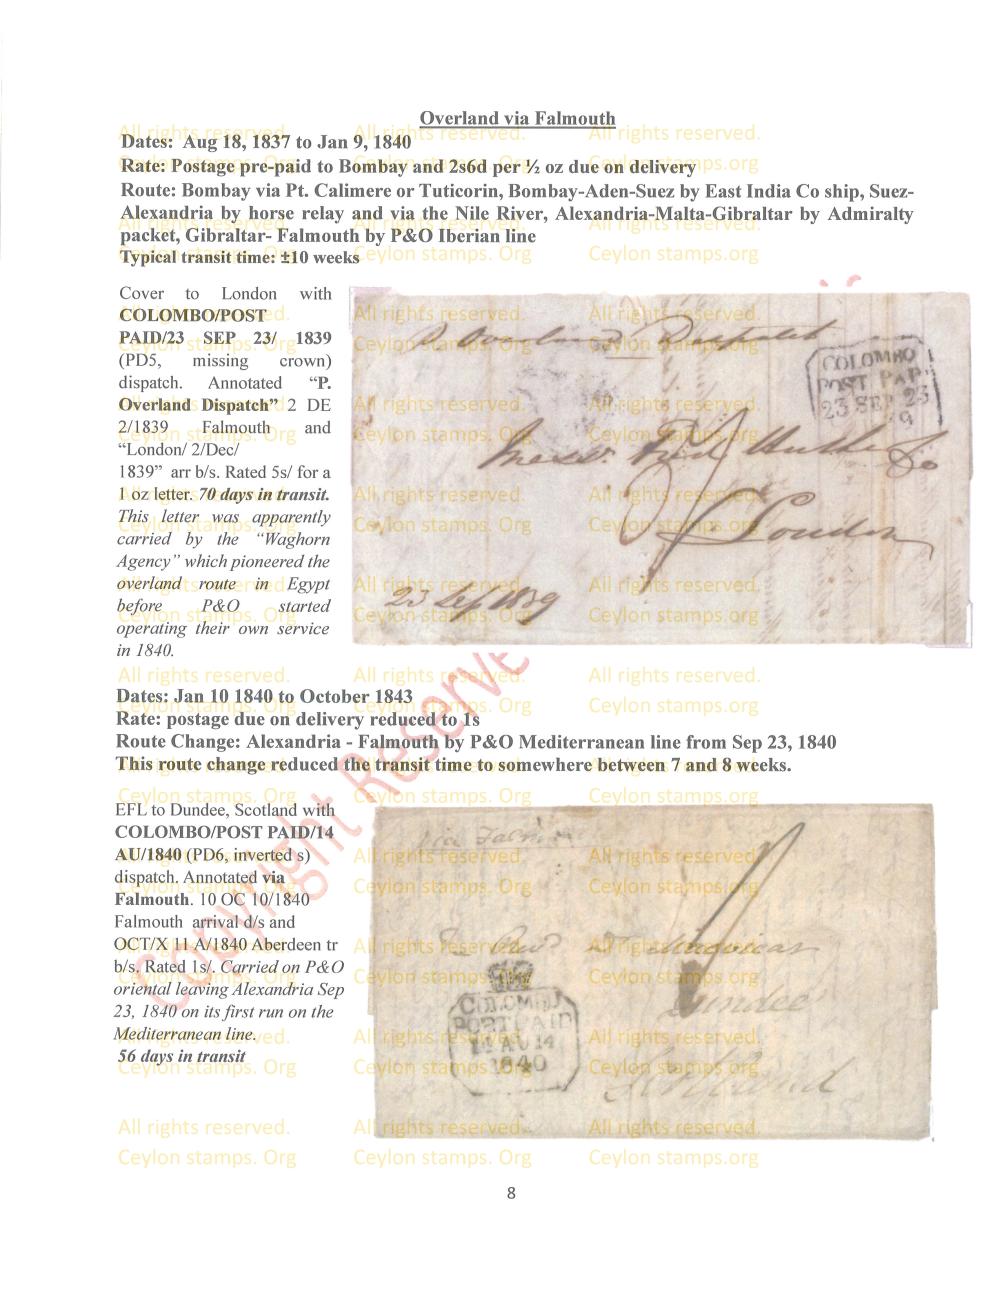 Overland via Falmouth
Dates: Aug 18, 1837 to Jan 9, 1840
Rate: Postage pre-paid to Bombay and 2s6d per ½ oz due on delivery
Route: Bombay via Pt. Calimere or Tuticorin, Bombay-Aden-Suez by East India Co ship, Suez-
Alexandria by horse relay and via the Nile River, Alexandria-Malta-Gibraltar by Admiralty
packet, Gibraltar- Falmouth by P&O Iberian line
Typical transit time: ±10 weeks
Cover to London with
COLOMBO/POST
PAID/23 SEP 23/ 1839
(PD5, missing crown)
dispatch. Annotated “P.
Overland Dispatch” 2 DE
2/1839 Falmouth and
“London/ 2/Dec/
1839” arr b/s. Rated 5s/ for a
1 oz letter. 70 days in transit.
This letter was apparently
carried by the “Waghorn
Agency” which pioneered the
overland route in Egypt
before P&O started
operating their own service
in 1840.
Overland Dispatch
COLOMBO
POST PAID
23 SEP 23
9
Messrs.
London
23 Sep 1839
Dates: Jan 10 1840 to October 1843
Rate: postage due on delivery reduced to 1s
Route Change: Alexandria - Falmouth by P&O Mediterranean line from Sep 23, 1840
This route change reduced the transit time to somewhere between 7 and 8 weeks.
EFL to Dundee, Scotland with
COLOMBO/POST PAID/14
AU/1840 (PD6, inverted s)
dispatch. Annotated via
Falmouth. 10 OC 10/1840
Falmouth arrival d/s and
OCT/X 11 A/1840 Aberdeen tr
b/s. Rated 1s/. Carried on P&O
oriental leaving Alexandria Sep
23, 1840 on its first run on the
Mediterranean line.
56 days in transit
via Falmouth
Dundee
Scotland
COLOMBO
POST PAID
14 AU 14
1840
Copyright Reserve
All rights reserved. All rights reserved. All rights reserved.
Ceylon stamps. Org Ceylon stamps. Org Ceylon stamps.org
8